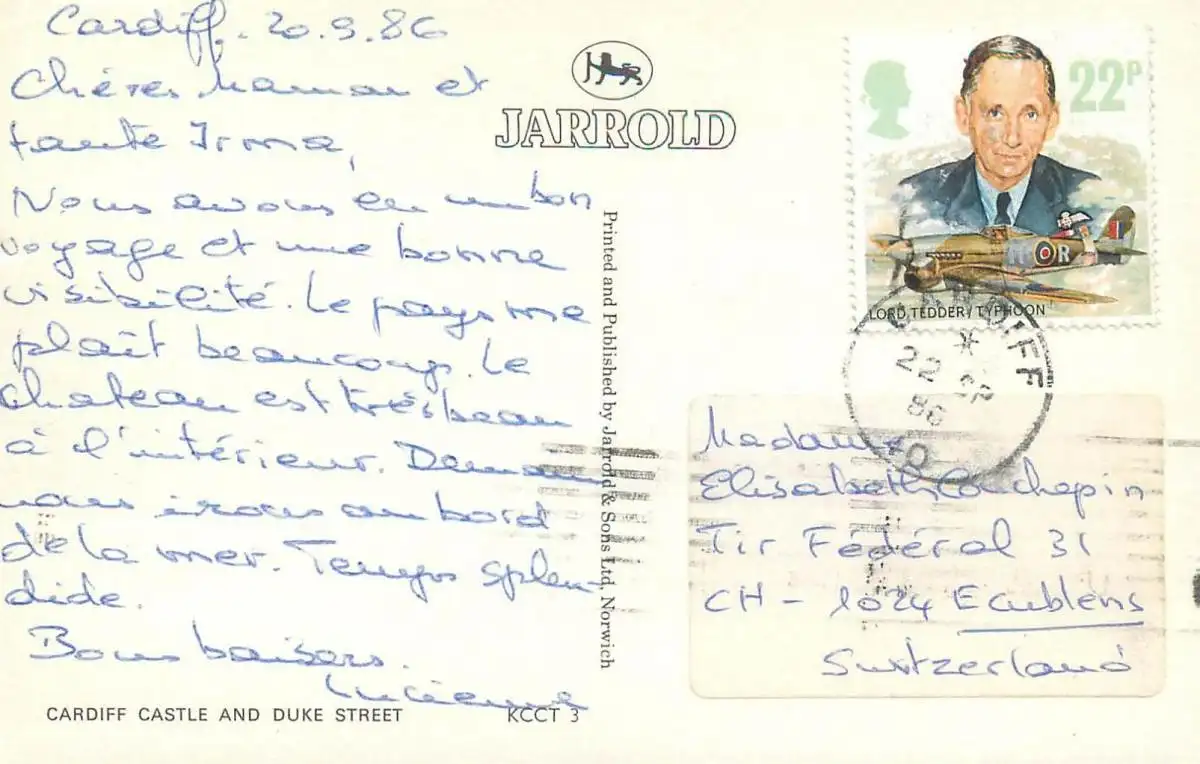 Cardiff. 20.9.86
Chères Maman et
tante Irma,
Nous avons eu un bon
voyage et une bonne
visibilité. Le pays me
plaît beaucoup. Le
chateau est très beau
à l'intérieur. Demain
nous irons au bord
de la mer. Temps splen-
dide.
Bons baisers.
Lucienne
CARDIFF CASTLE AND DUKE STREET
KCCT 3
J
JARROLD
Printed and Published by Jarrold & Sons Ltd, Norwich
22P
R
LORD TEDDER/TYPHOON
CARDIFF
22 SP
86
Madame
Elisabeth
Tir Fédéral 31
CH - 1024 Ecublens
Switzerland